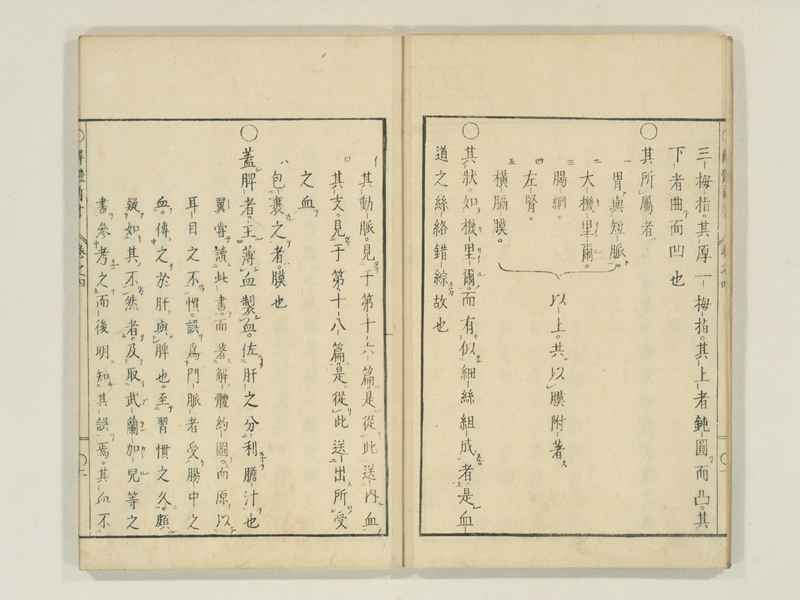 三梅指。其厚一梅指。其上者鈍圓而凸。其
下者曲而凹也
○其所屬者
一胃與短脈。
二大機里爾。
三腸網。
四左腎。
五橫膈膜。
以上。共以膜附著
○其狀。如機里爾。而有似細絲組成者。是血
道之絲絡錯綜故也
イ其動脈。見于第十六篇。是從此送内血
ロ其支。見于第十八篇。是從此送出所受
之血
ハ包裹之者。膜也
○蓋脾者。主薄血製血。佐肝之分利膽汁也
翼嘗讀此書。而著解體約圖。而原以
耳目之不慣。誤爲門脈者受腸中之
血。傳之於肝與脾也。至習慣之久。頗
疑如其不然者。及取武蘭加兒等之
書參考之。而後明知其誤焉。其血不